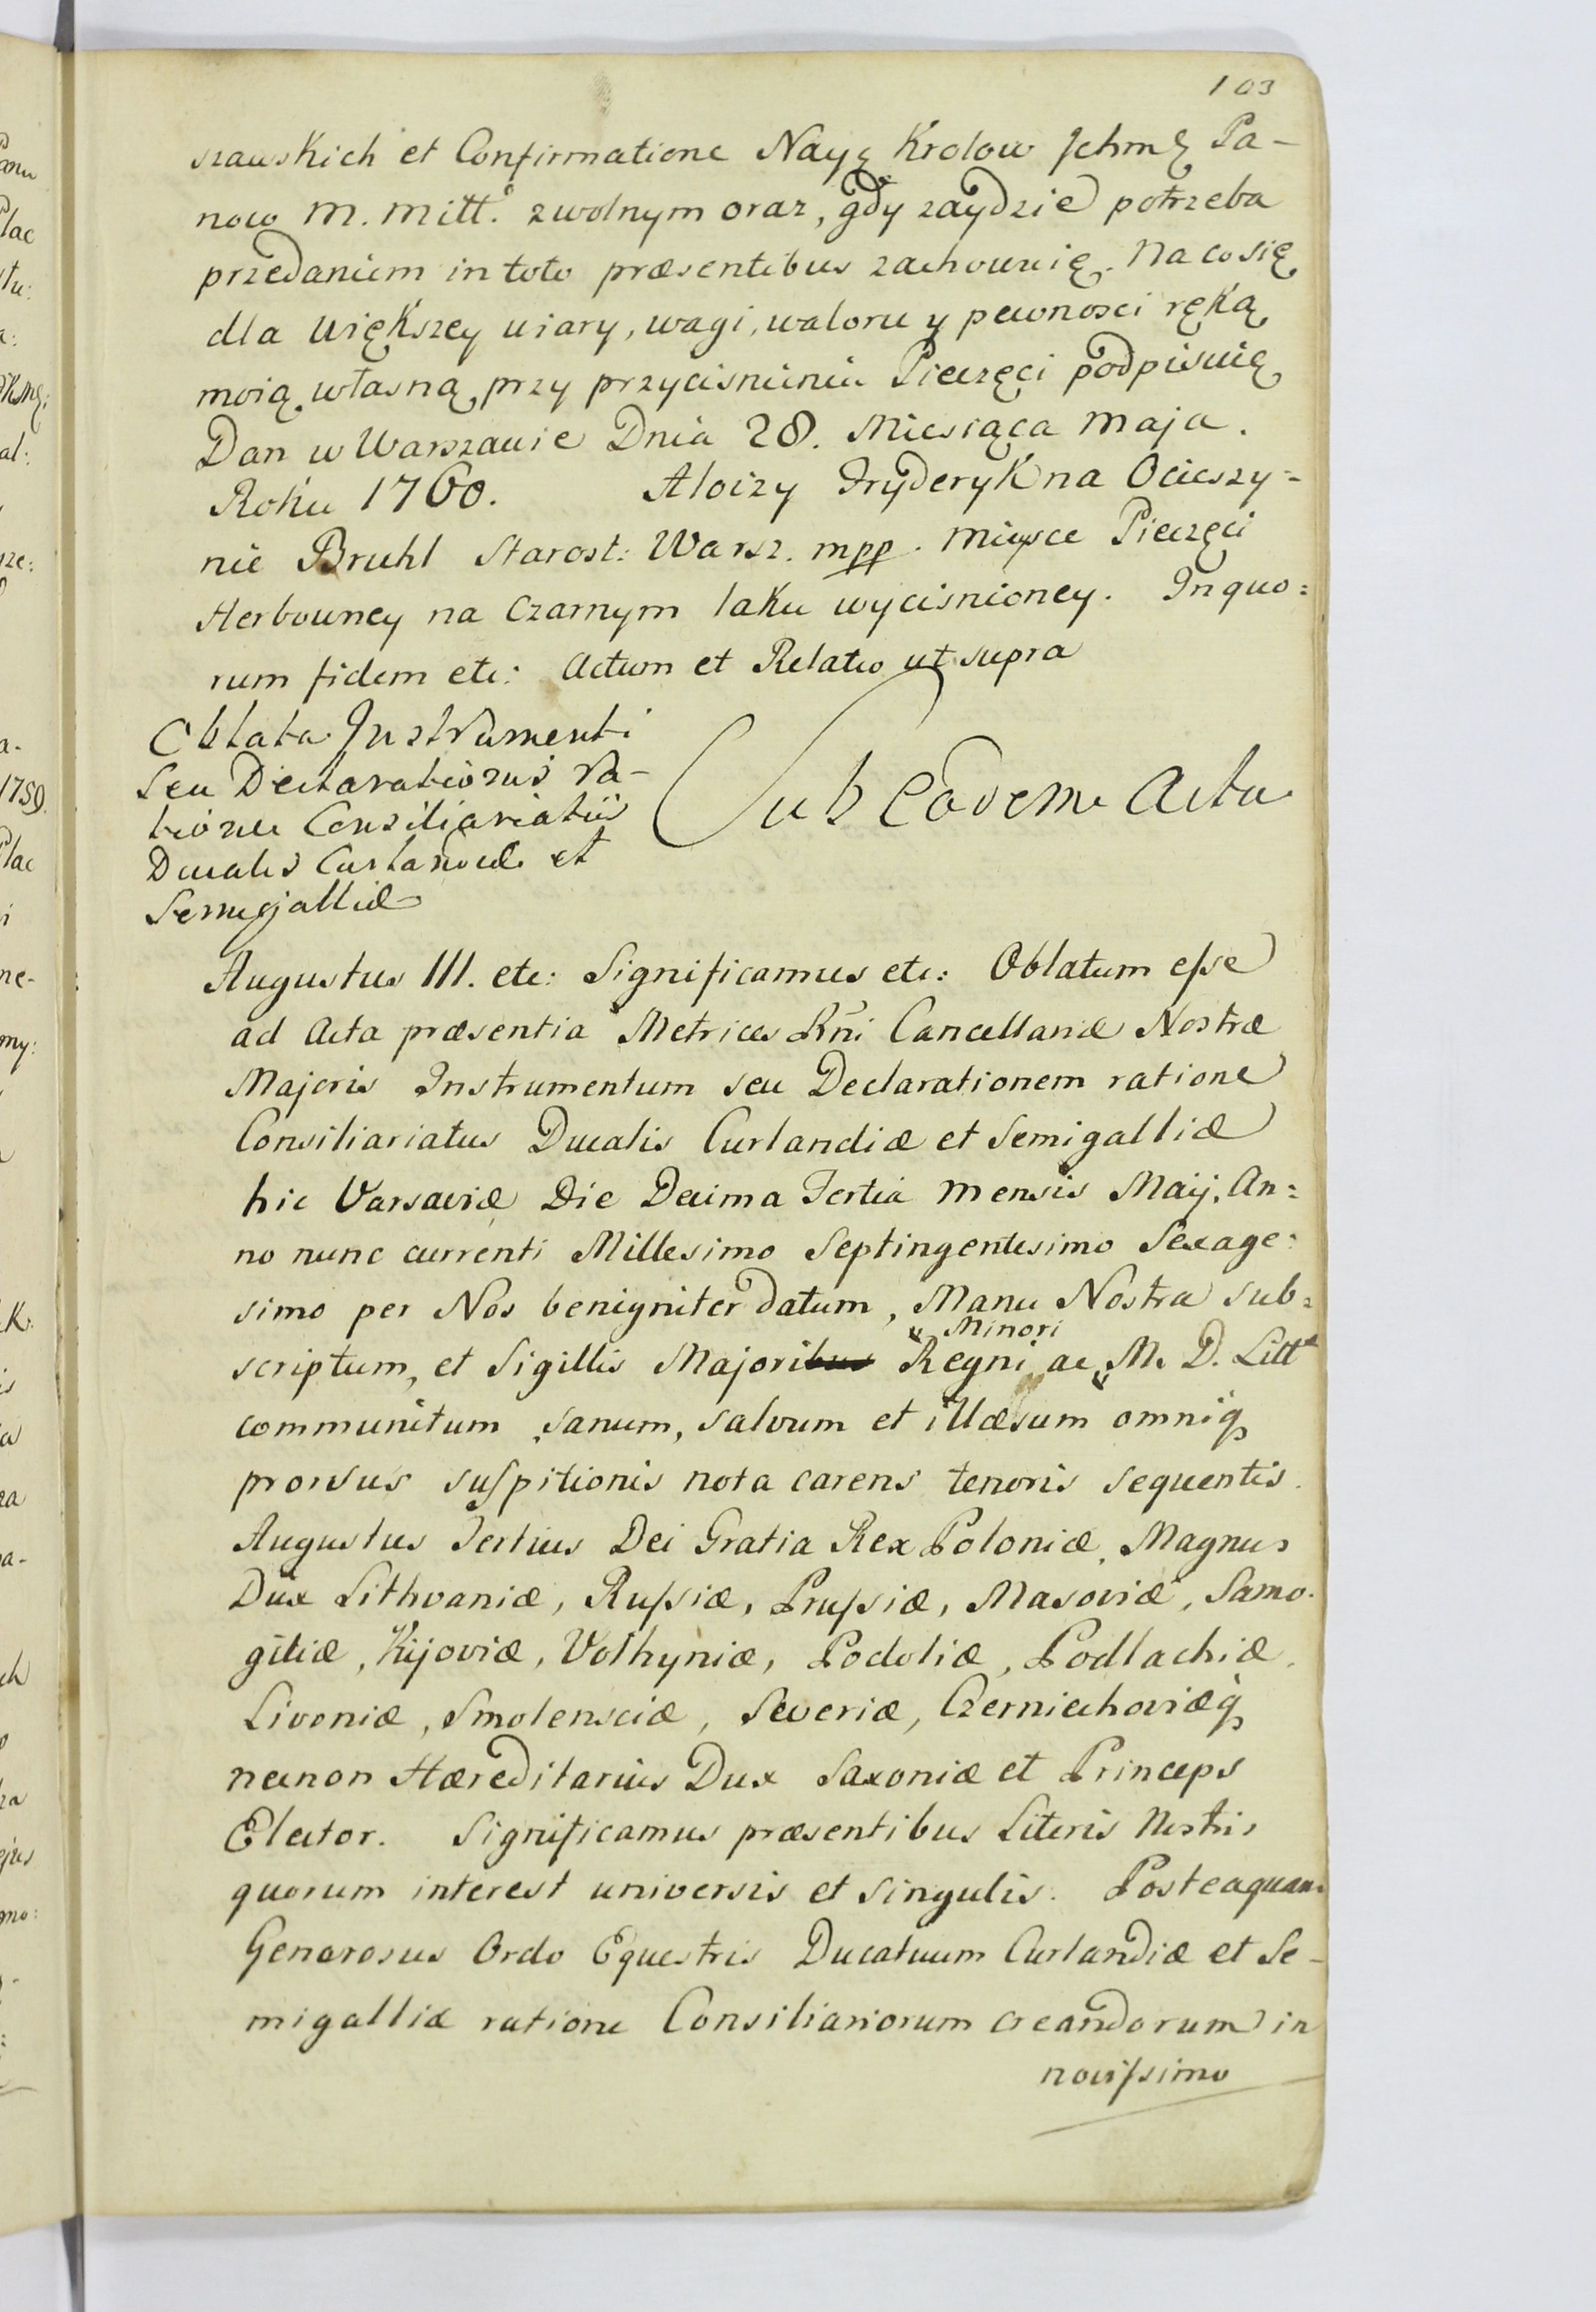 103
szawskich et Confirmatione Nayę Krolow Jchmę Pa-
now M. Miłł: zwolnym oraz, gdy zaydzie potrzeba
przedaniem in toto præsentibus zachowuię. Na co się
dla większey wiary, wagi, waloru y pewnosci ręką
moią własną przy przycisnieniu Pieczęci podpisuię
Dan w Warszawie Dnia 28. Miesiąca Maja.
Roku 1760. Aloizy Fryderyk na Ocieszy=
nie Bruhl Starost: Warsz. mpp. Mieysce Pieczęci
Herbowney na Czarnym laku wycisnioney. In quo=
rum fidem etc: Actum et Relatio ut supra
Oblata Instrumenti
seu Declarationis ra-
tione Consiliariatus
Ducalis Curlandiæ et
Semigalliæ
Sub Eodem Actu
Augustus III. etc: Significamus etc: Oblatum esse
ad Acta præsentia Metrices Rñi Cancellariæ Nostræ
Majoris Instrumentum seu Declarationem ratione
Consiliariatus Ducalis Curlandiæ et Semigalliæ
hic Varsaviæ Die Decima Tertia Mensis Maij, An=
no nunc currenti Millesimo Septingentesimo Sexage:
simo per Nos benigniter datum, Manu Nostra sub=
scriptum, et Sigillis Majoribus Regni ac Minori M. D. Litt
communitum sanum, salvum et illæsum omniq
prorsus suspitionis nota carens tenoris sequentis.
Augustus Tertius Dei Gratia Rex Poloniæ, Magnus
Dux Lithvaniæ, Russiæ, Prussiæ, Masoviæ, Samo-
gitiæ, Kijoviæ, Volhyniæ, Podoliæ, Podlachiæ,
Livoniæ, Smolensciæ, Severiæ, Czerniechoviæq
necnon Hæreditarius Dux Saxoniæ et Princeps
Elector. Significamus præsentibus Literis Nostris
quorum interest universis et singulis. Posteaquam
Generosus Ordo Equestris Ducatuum Curlandiæ et Se-
migalliæ ratione Consiliariorum creandorum in
novissimo